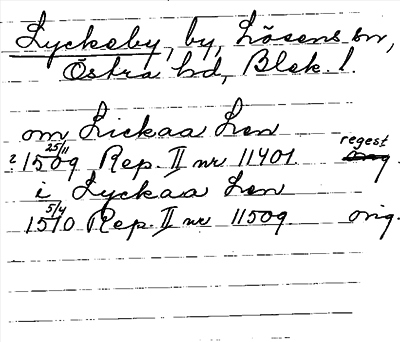 Lyckeby, by, Lösens sn,
Östra hd, Blek. l.
om Lickaa Len
? 1509 25/11 Rep. II nr 11401. regest
i Lyckaa Len
1510 5/4 Rep. II nr 11509 orig.